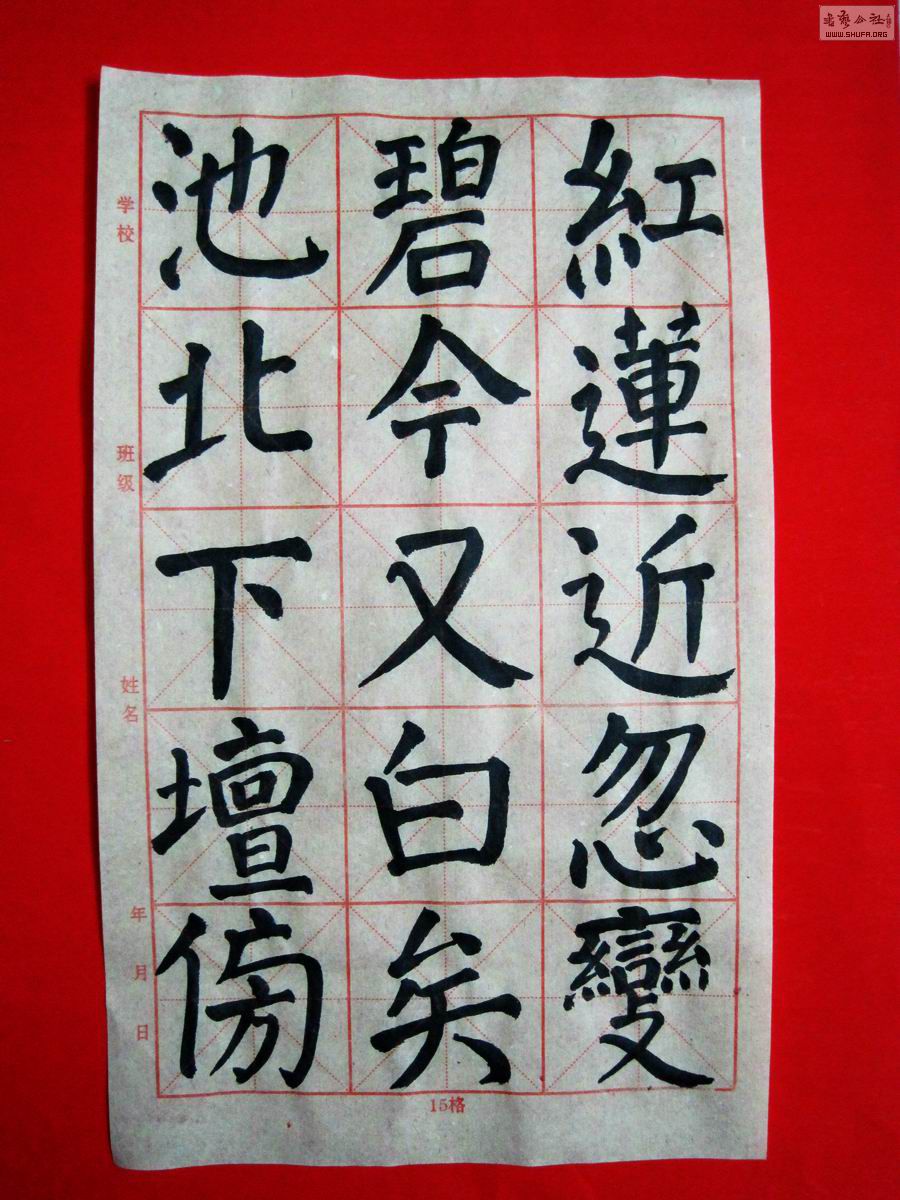 紅蓮近忽變
碧今又白矣
池北下壇傍
学校
班级
姓名
年
月
日
15格
WWW.SHUFA.ORG